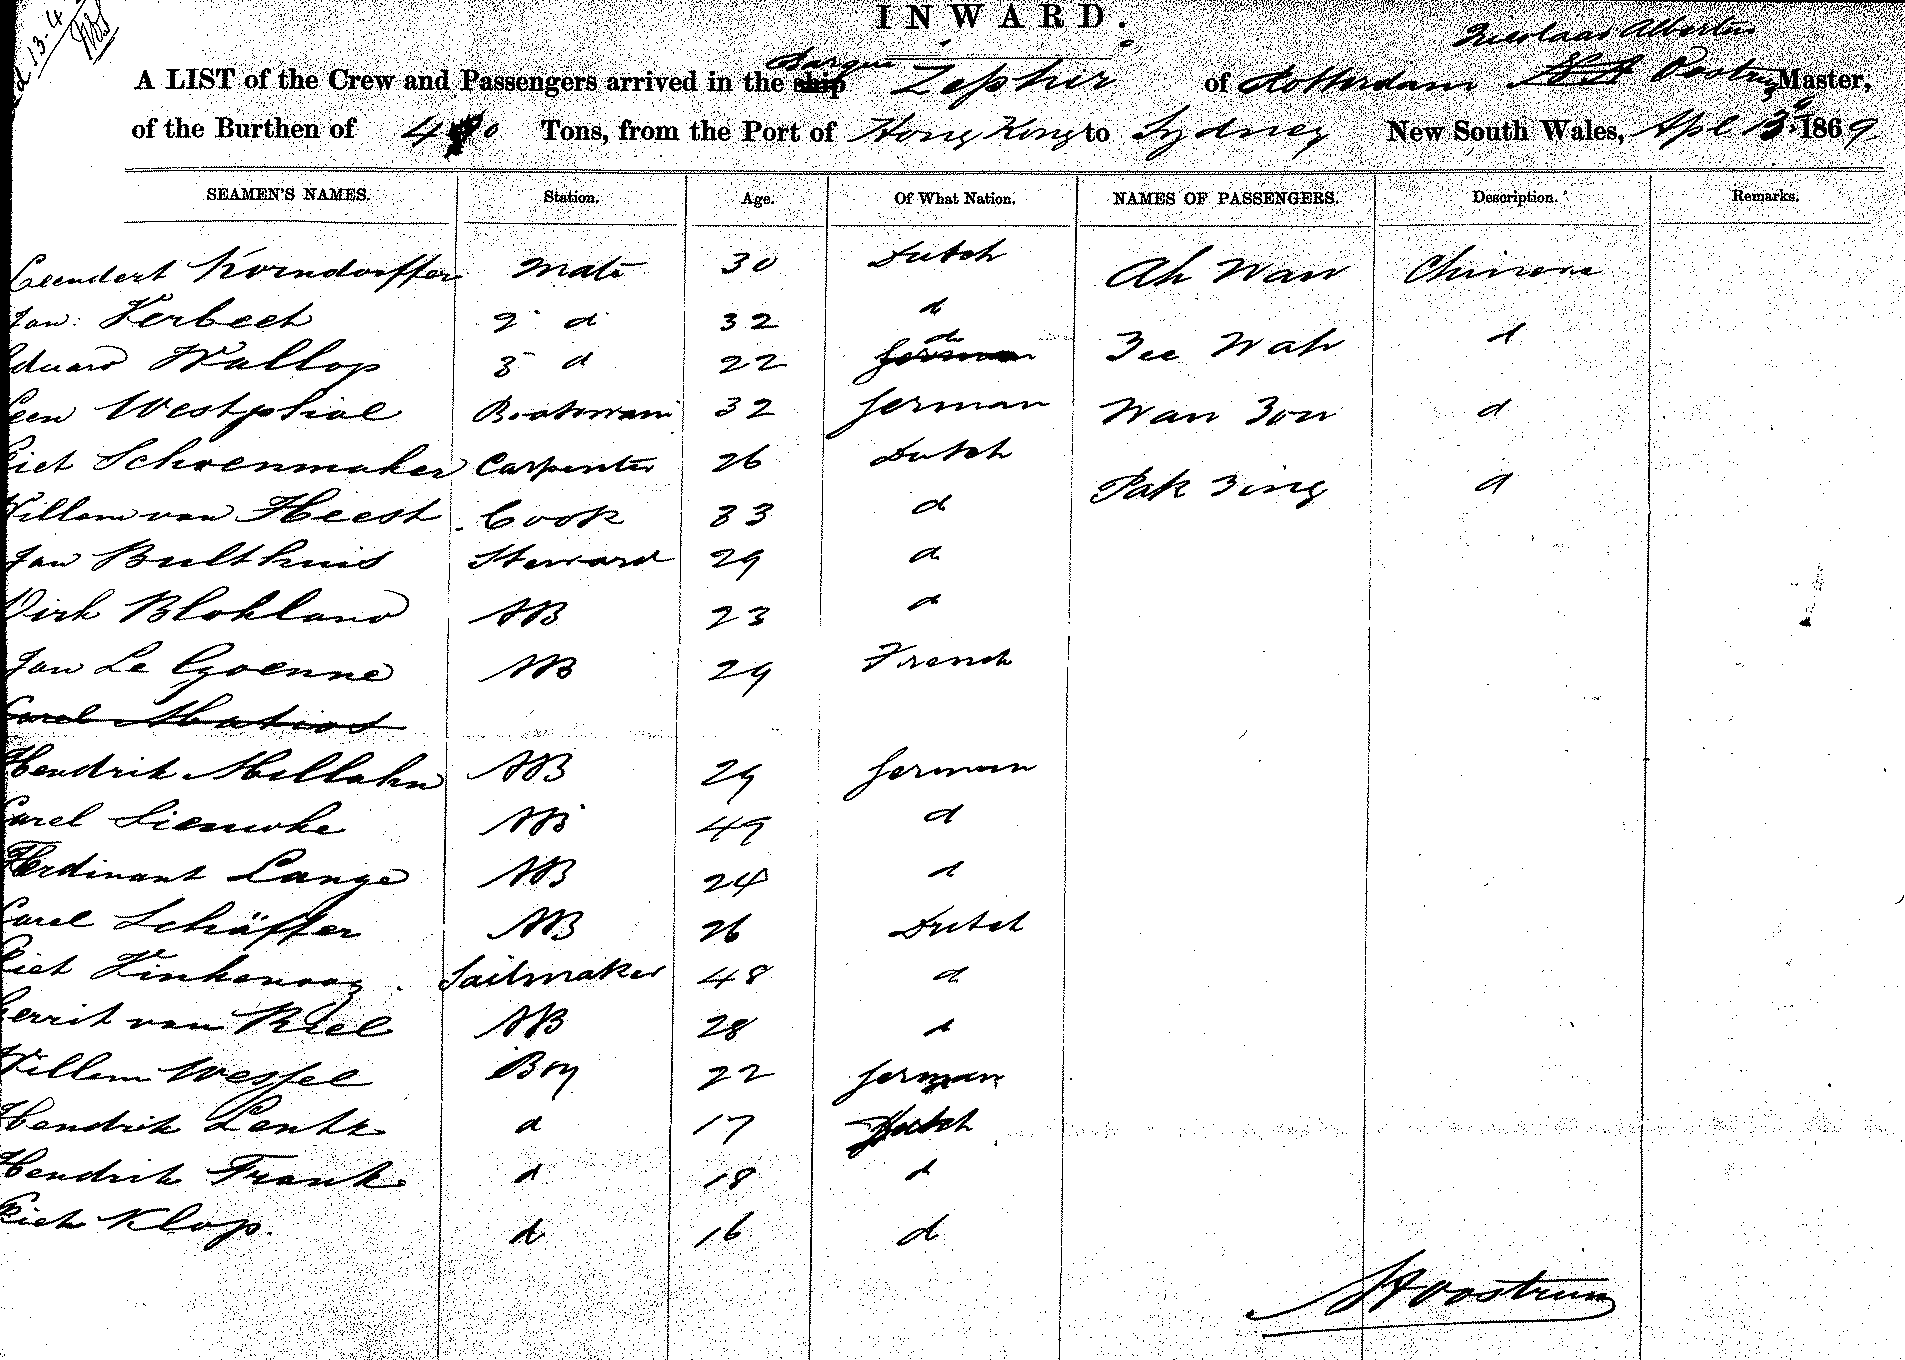 13-4
INWARD.
Nicolaas Albertus
Barque
A LIST of the Crew and Passengers arrived in the ship Zephir of Rotterdam N A Oostrum Master,
of the Burthen of Tons, from the Port of Hong Kong to Sydney New South Wales, Apl 13 1869
SEAMEN'S NAMES. Station. Age. Of What Nation. NAMES OF PASSENGERS. Description. Remarks.
Leendert Korndorffer Mate 30 Dutch Ah Wan Chinese
Jan Verbeet 2 d 32 d
Eduard Wallop 3 d 22 German d Zee Wah d
Leen Westphal Boatswain 32 German Wan Zon d
Piet Schoenmaker Carpenter 26 Dutch
Willem van Heest Cook 33 d Pak Zing d
Jan Bulthuis Steward 29 d
Dirk Blokland AB 23 d
Jan Le Goenne AB 29 French
Carel Matios
Hendrik Mellahn AB 29 German
Carel AB 49 d
Ferdinant Lange AB 24 d
Carel Schäffer AB 26 Dutch
Piet Vinkenoog Sailmaker 48 d
Gerrit van Kiel AB 28 d
Willem Wessel Boy 22 German
Hendrik Lentz d 17 Dutch
Hendrik Frank d 18 d
Piet Klop. d 16 d
NAOostrum